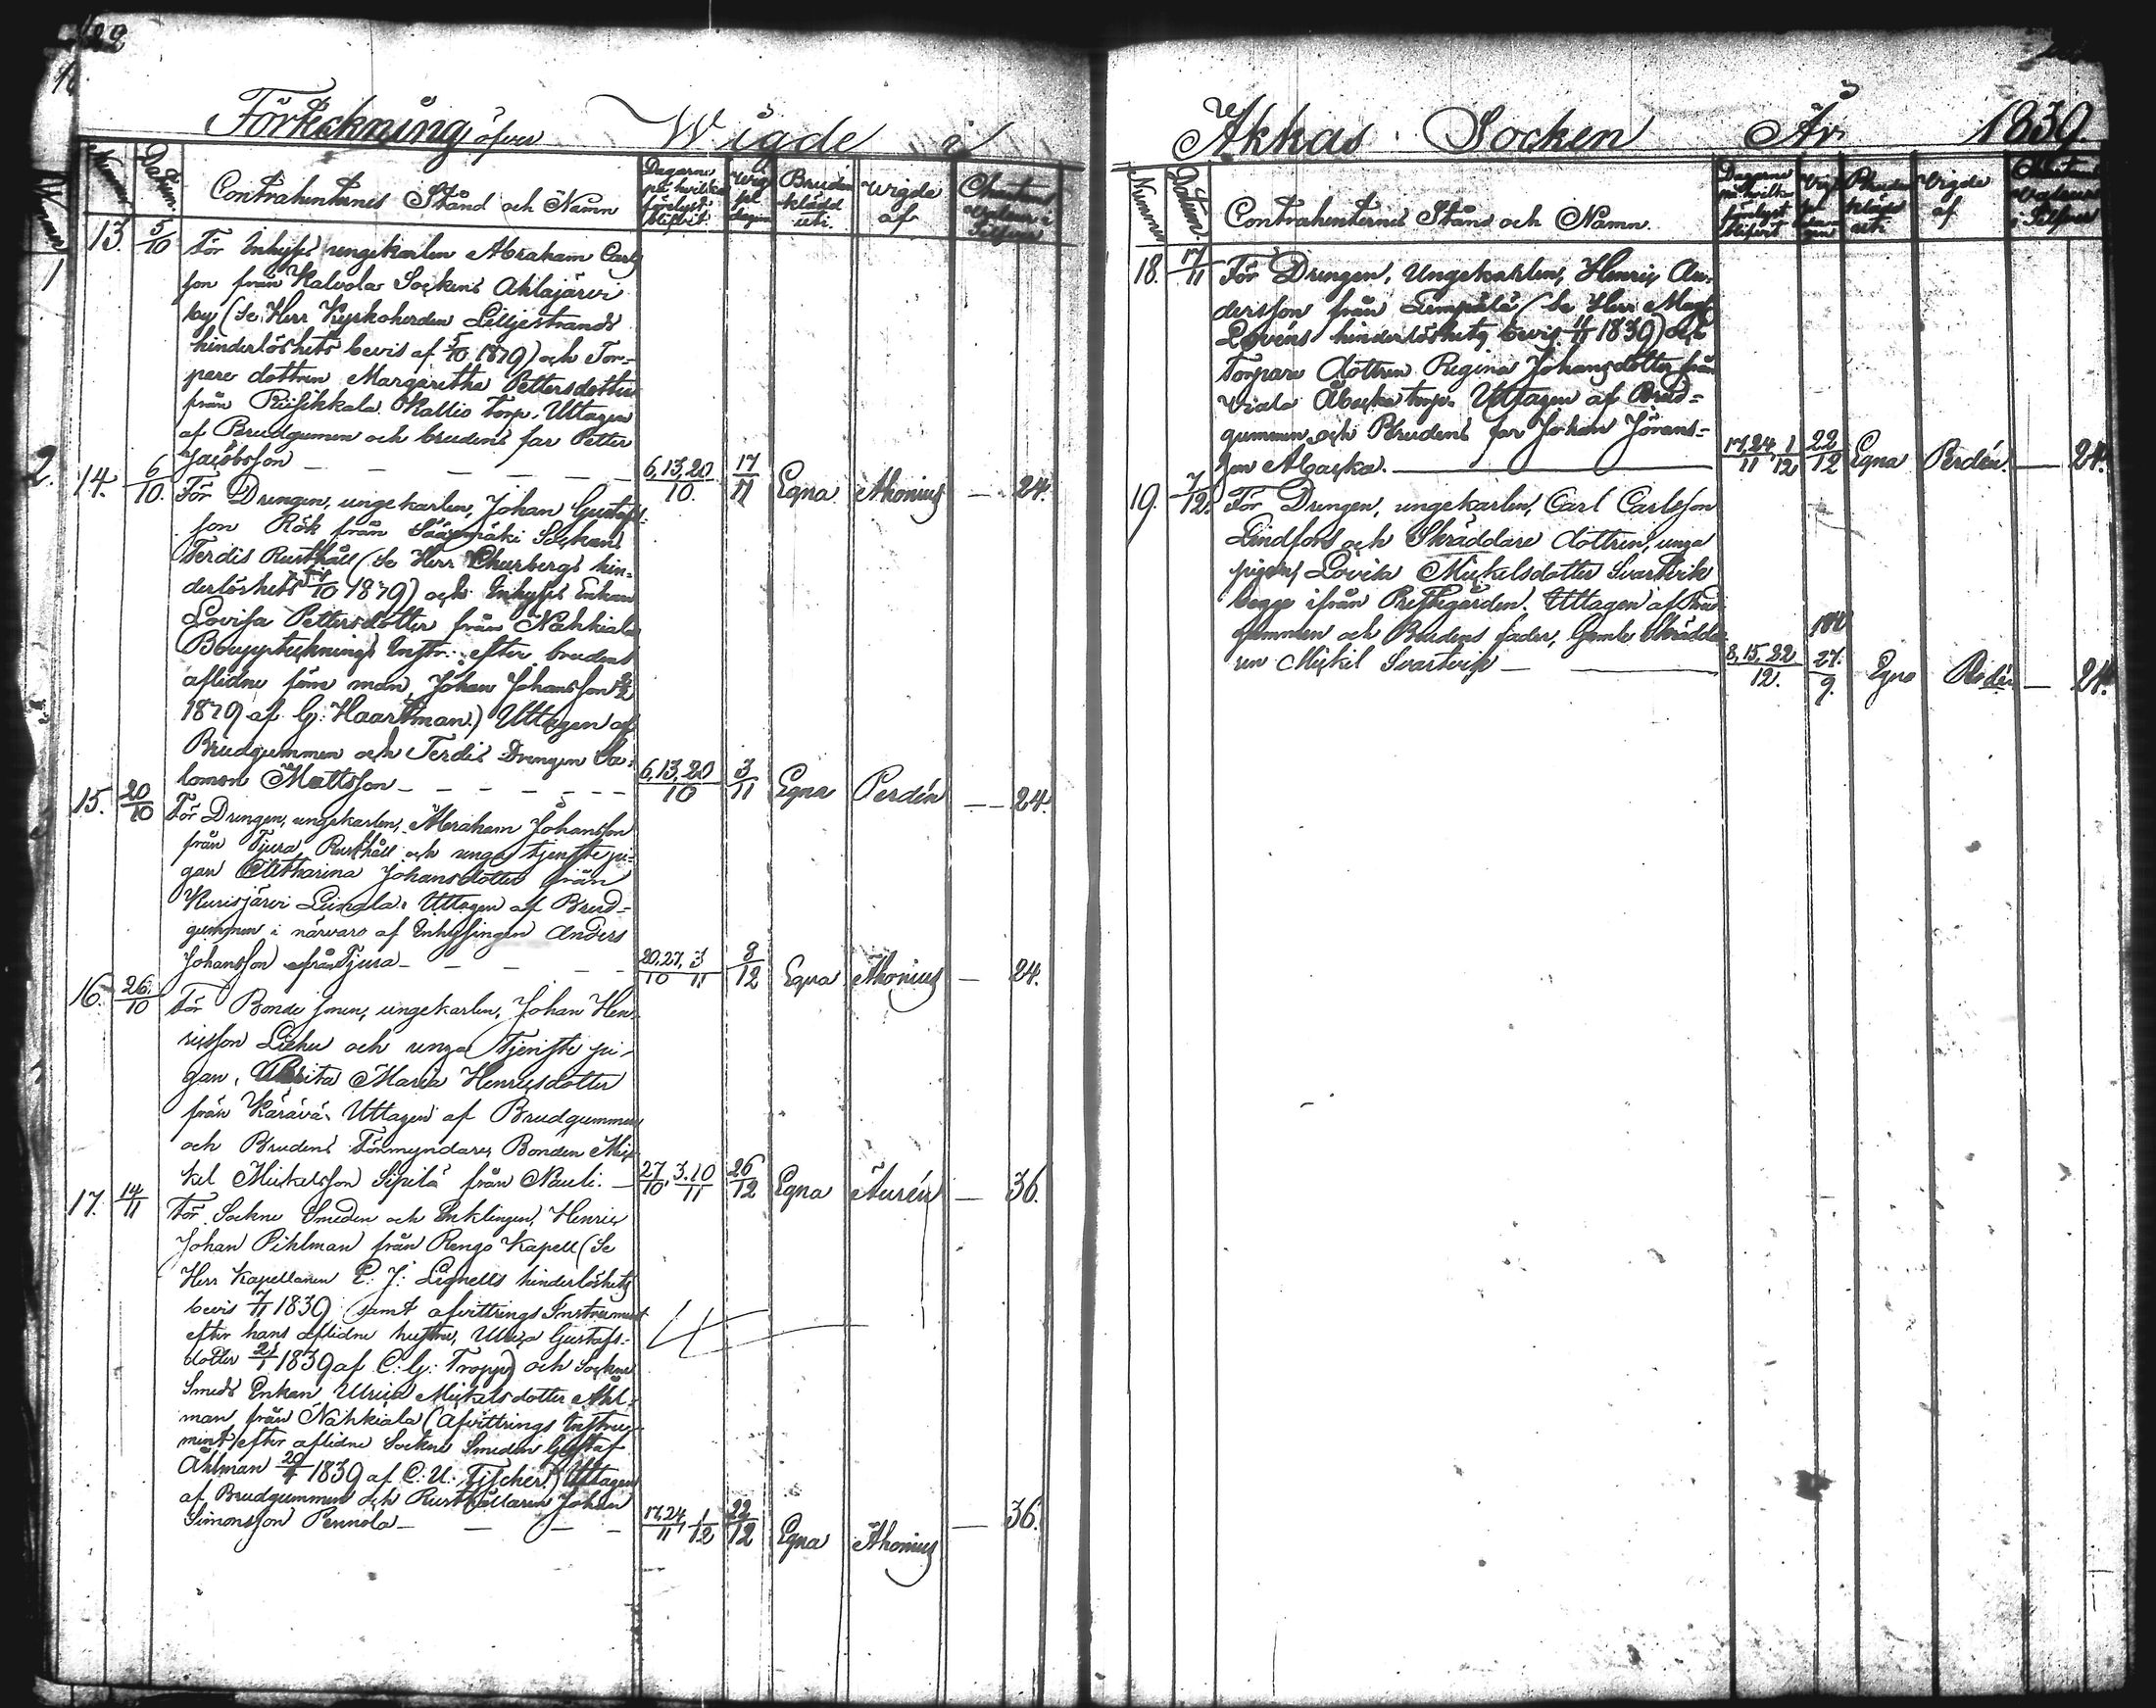 Förteckning öfver Wigde i
Nummer
Datum.
Contrahenternes Stånd och Namn
Dagarne på hvilka förelyst blifvit.
Brudens klädd uti.
Wigde af
13. 5/10 För Inhyses ungekarlen Abraham Carls
son från Kalvola Sockens Ahlajärvi
by (Se Herr Kyrkoherden Lilljestrands
hinderlöshets bevis af 5/10 1839) och Tor-
pare dottren Margaretha Pettersdotter
från Riisikkala Kallio torp. Uttagen
af Brudgummen och brudens far Petter
Jacobsson — 6, 13, 20/10. 17/11 Egna Ahonius — 24.
14. 6/10. För Drengen, ungekarlen, Johan Gustafs-
son Rök från Sääxmäki Sockens
Terdis Rusthåll (Se Herr Churbergs hin-
derlöshets /10 1839) och Inhyses Enkan
Lovisa Pettersdotter från Nahkiala
Bouppteknings Instr: efter brudens
aflidne förre man, Johan Johansson
1839 af G: Haartman.) Uttagen af
Brudgummen och Terdis Drengen Sa-
lomon Mattsson — 6, 13, 20/10 3/11 Egna Perdén — 24.
15. 20/10 För Drengen, ungekarlen, Abraham Johansson
från Tjura Rusthåll och unga tjenste pi-
gan Catharina Johansdotter från
Kurisjärvi Lunola. Uttagen af Brud-
gummen i närvaro af Inhysingen Anders
Johansson från Tjura — 20, 27/10, 3/11 8/12 Egna Ahonius — 24.
16. 26/10 För Bonde sonen, ungekarlen, Johan Hen-
ricsson Liehu och unga Tjenste pi-
gan, Maria Henricsdotter
från Kärävä. Uttagen af Brudgummen
och Brudens Förmyndare, Bonden Mic-
kel Mickelsson Sipilä från Nauli. — 27/10, 3.10/11 26/12 Egna Aurén — 36.
17. 14/11 För Sockne Smeden och Enklingen, Henric
Johan Pihlman från Rengo Kapell (Se
Herr Kapellanen E: J: Lignells hinderlöshets
bevis 7/11 1839 samt afvittrings Instrument
efter hans aflidne hustru, Ulrica Gustafs-
dotter 21/1 1839 af C: G: Tropp) och Sockne
Smeds Enkan Ulrica Mickelsdotter Åhl-
man från Nahkiala (Afvittrings Instru-
ment efter aflidne Sockne Smeden Gustaf
Åhlman 20/4 1839 af C: U: Fischer.) Uttagen
af Brudgummen och Rusthållaren Johan
Simonsson Pennola — 17, 24/11, 1/12 22/12 Egna Ahonius — 36.
Akkas Socken År 1839
Nummer
Datum.
Contrahenternes Stånd och Namn.
Dagarne på hvilka förelyst blifvit
Wigde af
18. 17/11 För Drengen, Ungekarlen, Henric An-
dersson från Lempälä (Se Herr Mag
Lovéns hinderlöshets bevis 11/11 1839) och
Torpare dottren Regina Johansdotter från
Viala torp. Uttagen af Brud-
gummen och Brudens far Johan Jörans-
son — 17, 24/11, 1/12 22/12 Egna Perdén. — 24.
19. 7/12. För Drengen, ungekarlen, Carl Carlsson
Lindfors och Skräddare dottren, unga
pigan, Lovisa Mickelsdotter Svartvik
begge ifrån Prestegården. Uttagen af Brud
gummen och Brudens fader, Gamle Skrädda
ren Mickel Svartvik — 8, 15, 22/12. 1840 27. Egna Perdén — 24.